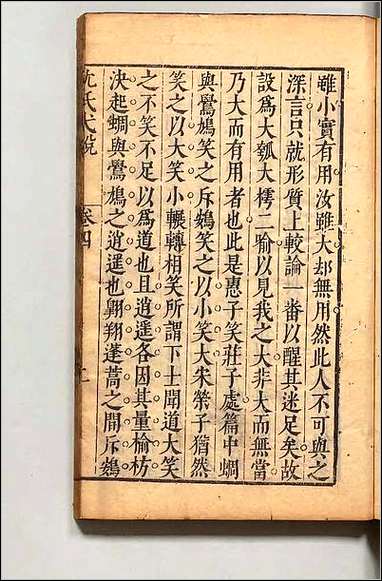 雖小實有用汝雖大却無用然此人不可與之
深言只就形質上較論一番以醒其迷足矣故
設爲大瓠大樗二喻以見我之大非大而無當
乃大而有用者也此是惠子笑莊子處篇中蜩
與鷽鳩笑之斥鴳笑之以小笑大朱榮子猶然
笑之以大笑小輾轉相笑所謂下士聞道大笑
之不笑不足以爲道也且逍遥各因其量榆枋
決起蜩與鷽鳩之逍遥也翺翔蓬蒿之間斥鴳
卷四